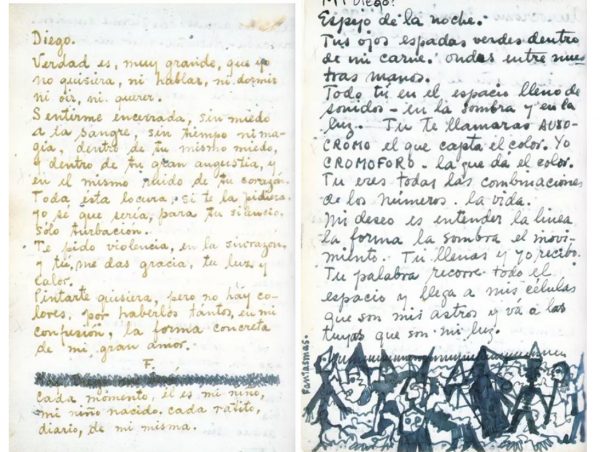 Diego.
Verdad es, muy grande, que yo
no quisiera, ni hablar, ni dormir
ni oir, ni querer.
Sentirme encerrada, sin miedo
a la sangre, sin tiempo ni ma-
gia, dentro de tu mismo miedo,
y dentro de tu gran angustia, y
en el mismo ruido de tu corazón.
Toda esta locura, si te la pidiera,
yo sé que sería, para tu silencio,
sólo turbación.
Te pido violencia, en la sinrazón,
y tú, me das gracia, tu luz y
calor.
Pintarte quisiera, pero no hay co-
lores, por haberlos tántos, en mi
confusión, la forma concreta
de mi gran amor.
F.
Cada momento, él es mi niño,
mi niño nacido, cada ratito,
diario, de mi misma.
Mi Diego:
Espejo de la noche.
Tus ojos espadas verdes dentro
de mi carne. ondas entre nues-
tras manos.
Todo tú en el espacio lleno de
sonidos - en la sombra y en la
luz. Tu te llamarás AUXO-
CROMO el que capta el color. Yo
CROMOFORO - la que dá el color.
Tu eres todas las combinaciones
de los números. la vida.
Mi deseo es entender la linea
la forma la sombra el movi-
miento. Tu llenas y yo recibo.
Tu palabra recorre todo el
espacio y llega a mis células
que son mis astros y vá a las
tuyas que son mi luz.
Fantasmas.